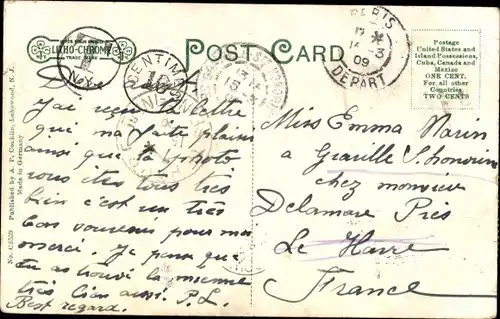 LITHO-CHROME
TRADE MARK
POST CARD
PARIS
14 -3
09
DEPART
Postage
United States and
Island Possessions,
Cuba, Canada and
Mexico
ONE CENT.
For all other
Countries
TWO CENTS
CENTIM
Published by A. P. Conklin, Lakewood, N. J.
Made in Germany
J'ai reçu ta lettre
qui ma fait plaisir
ainsi que la photo
vous êtes tous très
bien c'est un très
bon souvenir pour moi
merci. Je pense que
tu as trouvé la mienne
très bien aussi. P.L.
Best regard.
Miss Emma Marin
a Graville St honorine
chez monsieur
Delamare Près
Le Havre
France